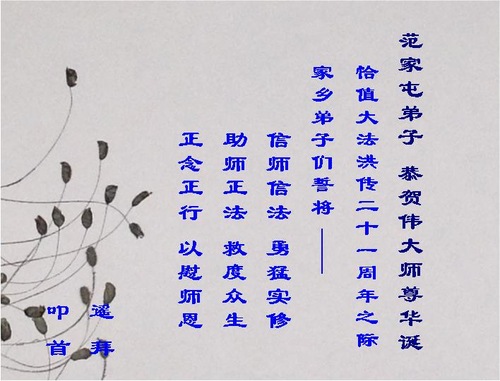 范家屯弟子 恭贺伟大师尊华诞
恰值大法洪传二十一周年之际
家乡弟子们誓将——
信师信法 勇猛实修
助师正法 救度众生
正念正行 以慰师恩
遥拜
叩首